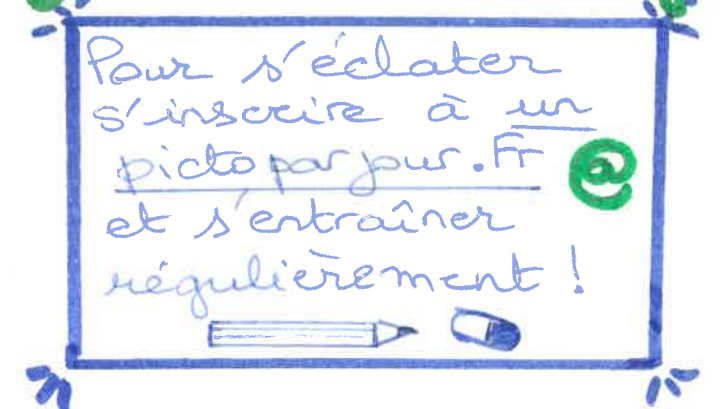 Pour s'éclater
s'inscrire à un
pictoparjour.Fr @
et s'entraîner
régulièrement !